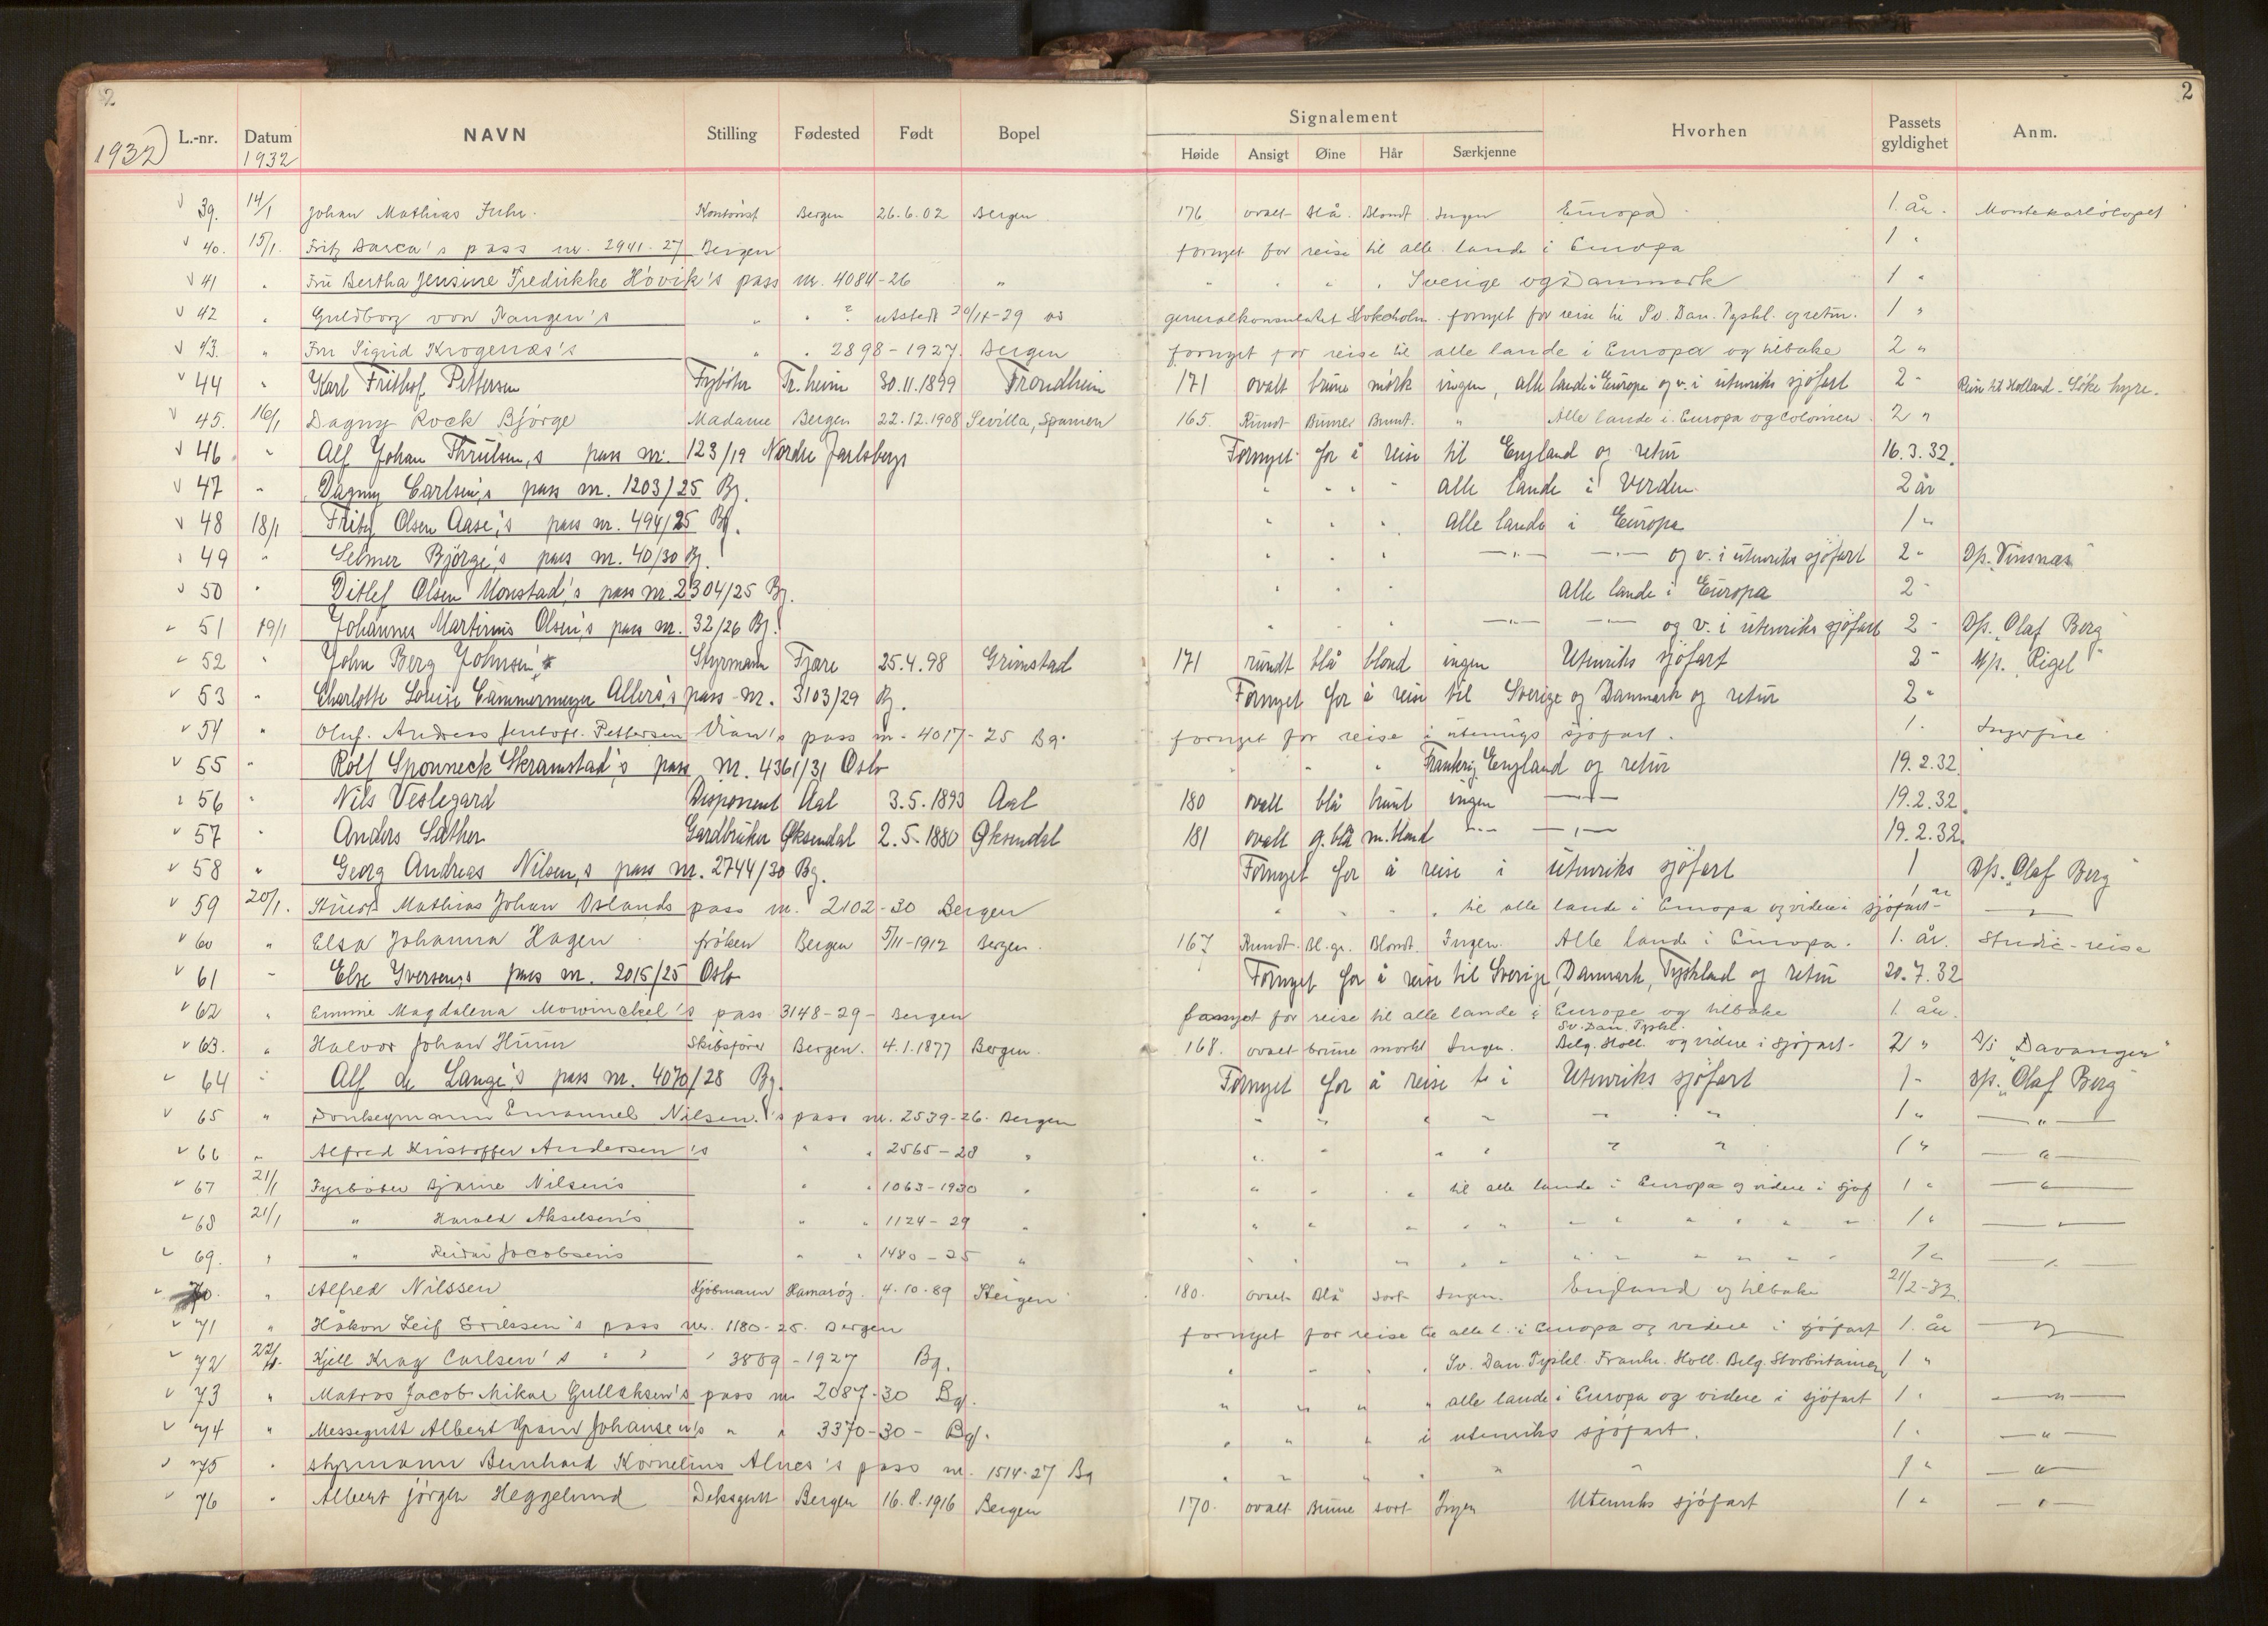 2.
2
1932
L.-nr. Datum 1932 NAVN Stilling Fødested Født Bopel Signalement Hvorhen Passets gyldighet Anm.
Høide Ansigt Øine Hår Særkjenne
39. 14/1 Johan Mathias Kontorist Bergen 26.6.02 Bergen 176 ovalt Blå. Blondt Ingen Europa 1. år. Montekarloløpet
40. 15/1. Fritz Barca's pass nr. 2941-27 Bergen fornyet for reise til alle lande i Europa 1 "
41 " Fru Bertha Jensine Fredrikke Hövik's pass nr. 4084-26 " " " " " Sverige og Danmark 1 "
42 " Guldborg von Tangen's " " ? utstedt 29 av generalkonsulatet Stokholm. fornyet for reise til Sv. Dan. Tyskl. og retur. 1 "
43. " Fru Sigrid Krogenæs's " " 2898-1927. Bergen fornyet for reise til alle lande i Europa og tilbake 2 "
44 " Karl Frithof Pettersen Fyrböter Tr.heim 30.11.1899 Trondheim 171 ovalt brune mörk ingen, alle lande i Europa og v. i utenriks sjöfart 2 " Reise til Holland - Söke hyre.
45. 16/1 Dagny Rock Bjørge Madame Bergen 22.12.1908 Sevilla, Spanien 165. Rundt Brune Brunt. " Alle lande i Europa og Colonien. 2 "
46. " Alf Johan Thrulsen,s pass nr. 123/19 Nordre Jarlsberg Fornyet for å reise til England og retur 16.3.32.
47 " Dagny Carlsen,s pass nr. 1203/25 Bg. " " " " alle lande i Verden 2 år
48 18/1 Fritz Olsen Aase,s pass nr. 494/25 Bg. " " " " alle lande i Europa 1 "
49 " Selmer Bjørge,s pass nr. 40/30 Bg. " " " —"— —"— og v. i utenriks sjöfart 2 " D/s. "Vinsnæs"
50 " Ditlef Olsen Monstad,s pass nr. 2304/25 Bg. " " " Alle lande i Europa 2 "
51 19/1 Johannes Martinius Olsen,s pass nr. 32/26 Bg. " " " —"— —"— og v. i utenriks sjöfart 2 " D/s. "Olaf Berg"
52 " John Berg Johnsen Styrmann Fjære 25.4.98 Grimstad 171 rundt blå blond ingen Utenriks sjöfart 2 " M/s. "Rigel"
53 " Charlotte Louise Cammermeyer Allers,s pass nr. 3103/29 Bg. Fornyet for å reise til Sverige og Danmark og retur 2 "
54 " Oluf. Andreas Jentoft. Pettersen Vian's pass nr. 4017-25 Bg. fornyet for reise i utenrigs sjøfart. 1. Ingerfire
55 " Rolf Sponneck Skramstad,s pass nr. 4361/31 Oslo " " " Frankrig England og retur 19.2.32.
56 " Nils Veslegard Disponent Aal 3.5.1893 Aal 180 ovalt blå brunt ingen —"— 19.2.32.
57 " Anders Sæther Gardbruker Øksendal 2.5.1880 Øksendal 181 ovalt g.blå m.blond "-- —"— 19.2.32.
58 " Georg Andreas Nilsen,s pass nr. 2744/30 Bg. Fornyet for å reise i utenriks sjöfart 1 D/s. "Olaf Berg"
59 20/1. Stuert Mathias Johan Oslands pass nr. 2102-30 Bergen " " " " til alle lande i Europa og videre i sjøfart 1 år —"—
60 " Elsa Johanna Hagen frøken Bergen 5/11-1912 Bergen. 167 Rundt. Bl.gr. Blondt. Ingen. Alle lande i Europa. 1. år. Studie-reise
61 " Else Iversen,s pass nr. 2015/25 Oslo Fornyet for å reise til Sverige, Danmark, Tyskland og retur 20.7.32
62 " Emmie Magdalena Mowinckel's pass 3148-29- Bergen fornyet for reise til alle lande i Europa og tilbake 1. år.
63. " Halvor Johan Skibsfører Bergen. 4.1.1877 Bergen. 168. ovalt brune mørkt Ingen. Sv. Dan. Tyskl. Belg. Holl. og videre i sjøfart. 2 " D/s "Davanger"
64 " Alf de Lange's pass nr. 4070/28 Bg. Fornyet for å reise i Utenriks sjöfart 1 - D/s. "Olaf Berg"
65 " Donkeymann Emanuel Nilsen's pass nr. 2539-26. Bergen " " " " " " 1 " —"—
66 " Alfred Kristoffer Andersen's " " 2565-28 " " " " " " " 1 " —"—
67 21/1 Fyrbøter Bjarne Nilsen's " " 1063-1930 " " " " " til alle lande i Europa og videre i sjøf 1 " —"—
68 21/1 " Harald Akselsen's " " 1124-29 " " " " " " " " " " " 1 " —"—
69. " " Reidar Jacobsen's " " 1480-25 " " " " " " " " " " " 1 " —"—
70. " Alfred Nilssen Kjøbmann Hamarøy 4.10.89 Steigen 180. ovalt Blå sort Ingen. England og tilbake 21/2-32.
71 " Håkon Leif Erikssen's pass nr. 1180-25. Bergen fornyet for reise til alle l. i Europa og videre i sjøfart 1. år —"—
72 22/1. Kjell Krag Carlsen's " " " 3889-1927 Bg. " " " " Sv. Dan. Tyskl. Frankr. Holl. Belg. Storbritanien 1 "
73 " Matros Jacob Mikal Gullaksen's pass nr 2087-30 Bg. " " " " alle lande i Europa og videre i sjøfart 1 " —"—
74 " Messegutt Albert Johansen's " " 3370-30- Bg. " " " i utenriks sjøfart. 1 " —"—
75 " Styrmann Bernhard Kornelius Alnes's pass nr. 1514-27 Bg " " " " " " 1 " —"—
76 " Albert Jörgen Heggelund Deksgutt Bergen 16.8.1916 Bergen 170. ovalt Brune sort Ingen Utenriks sjøfart 1 " —"—